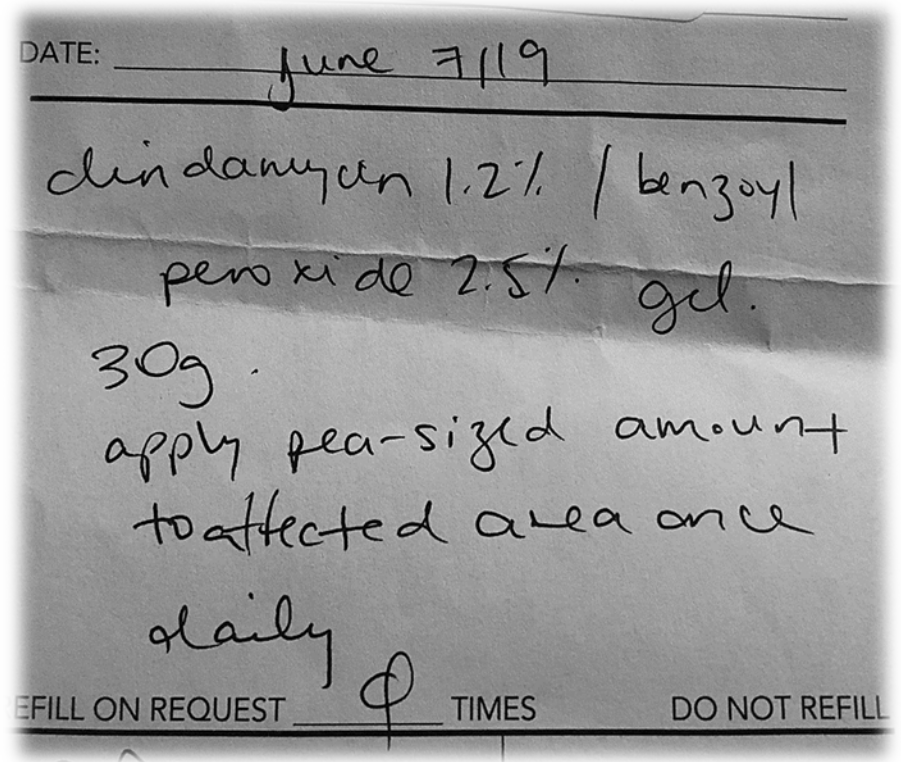 DATE: June 7/19
clindamycin 1.2% / benzoyl
peroxide 2.5% gel.
30g.
apply pea-sized amount
to affected area once
daily
EFILL ON REQUEST φ TIMES DO NOT REFILL